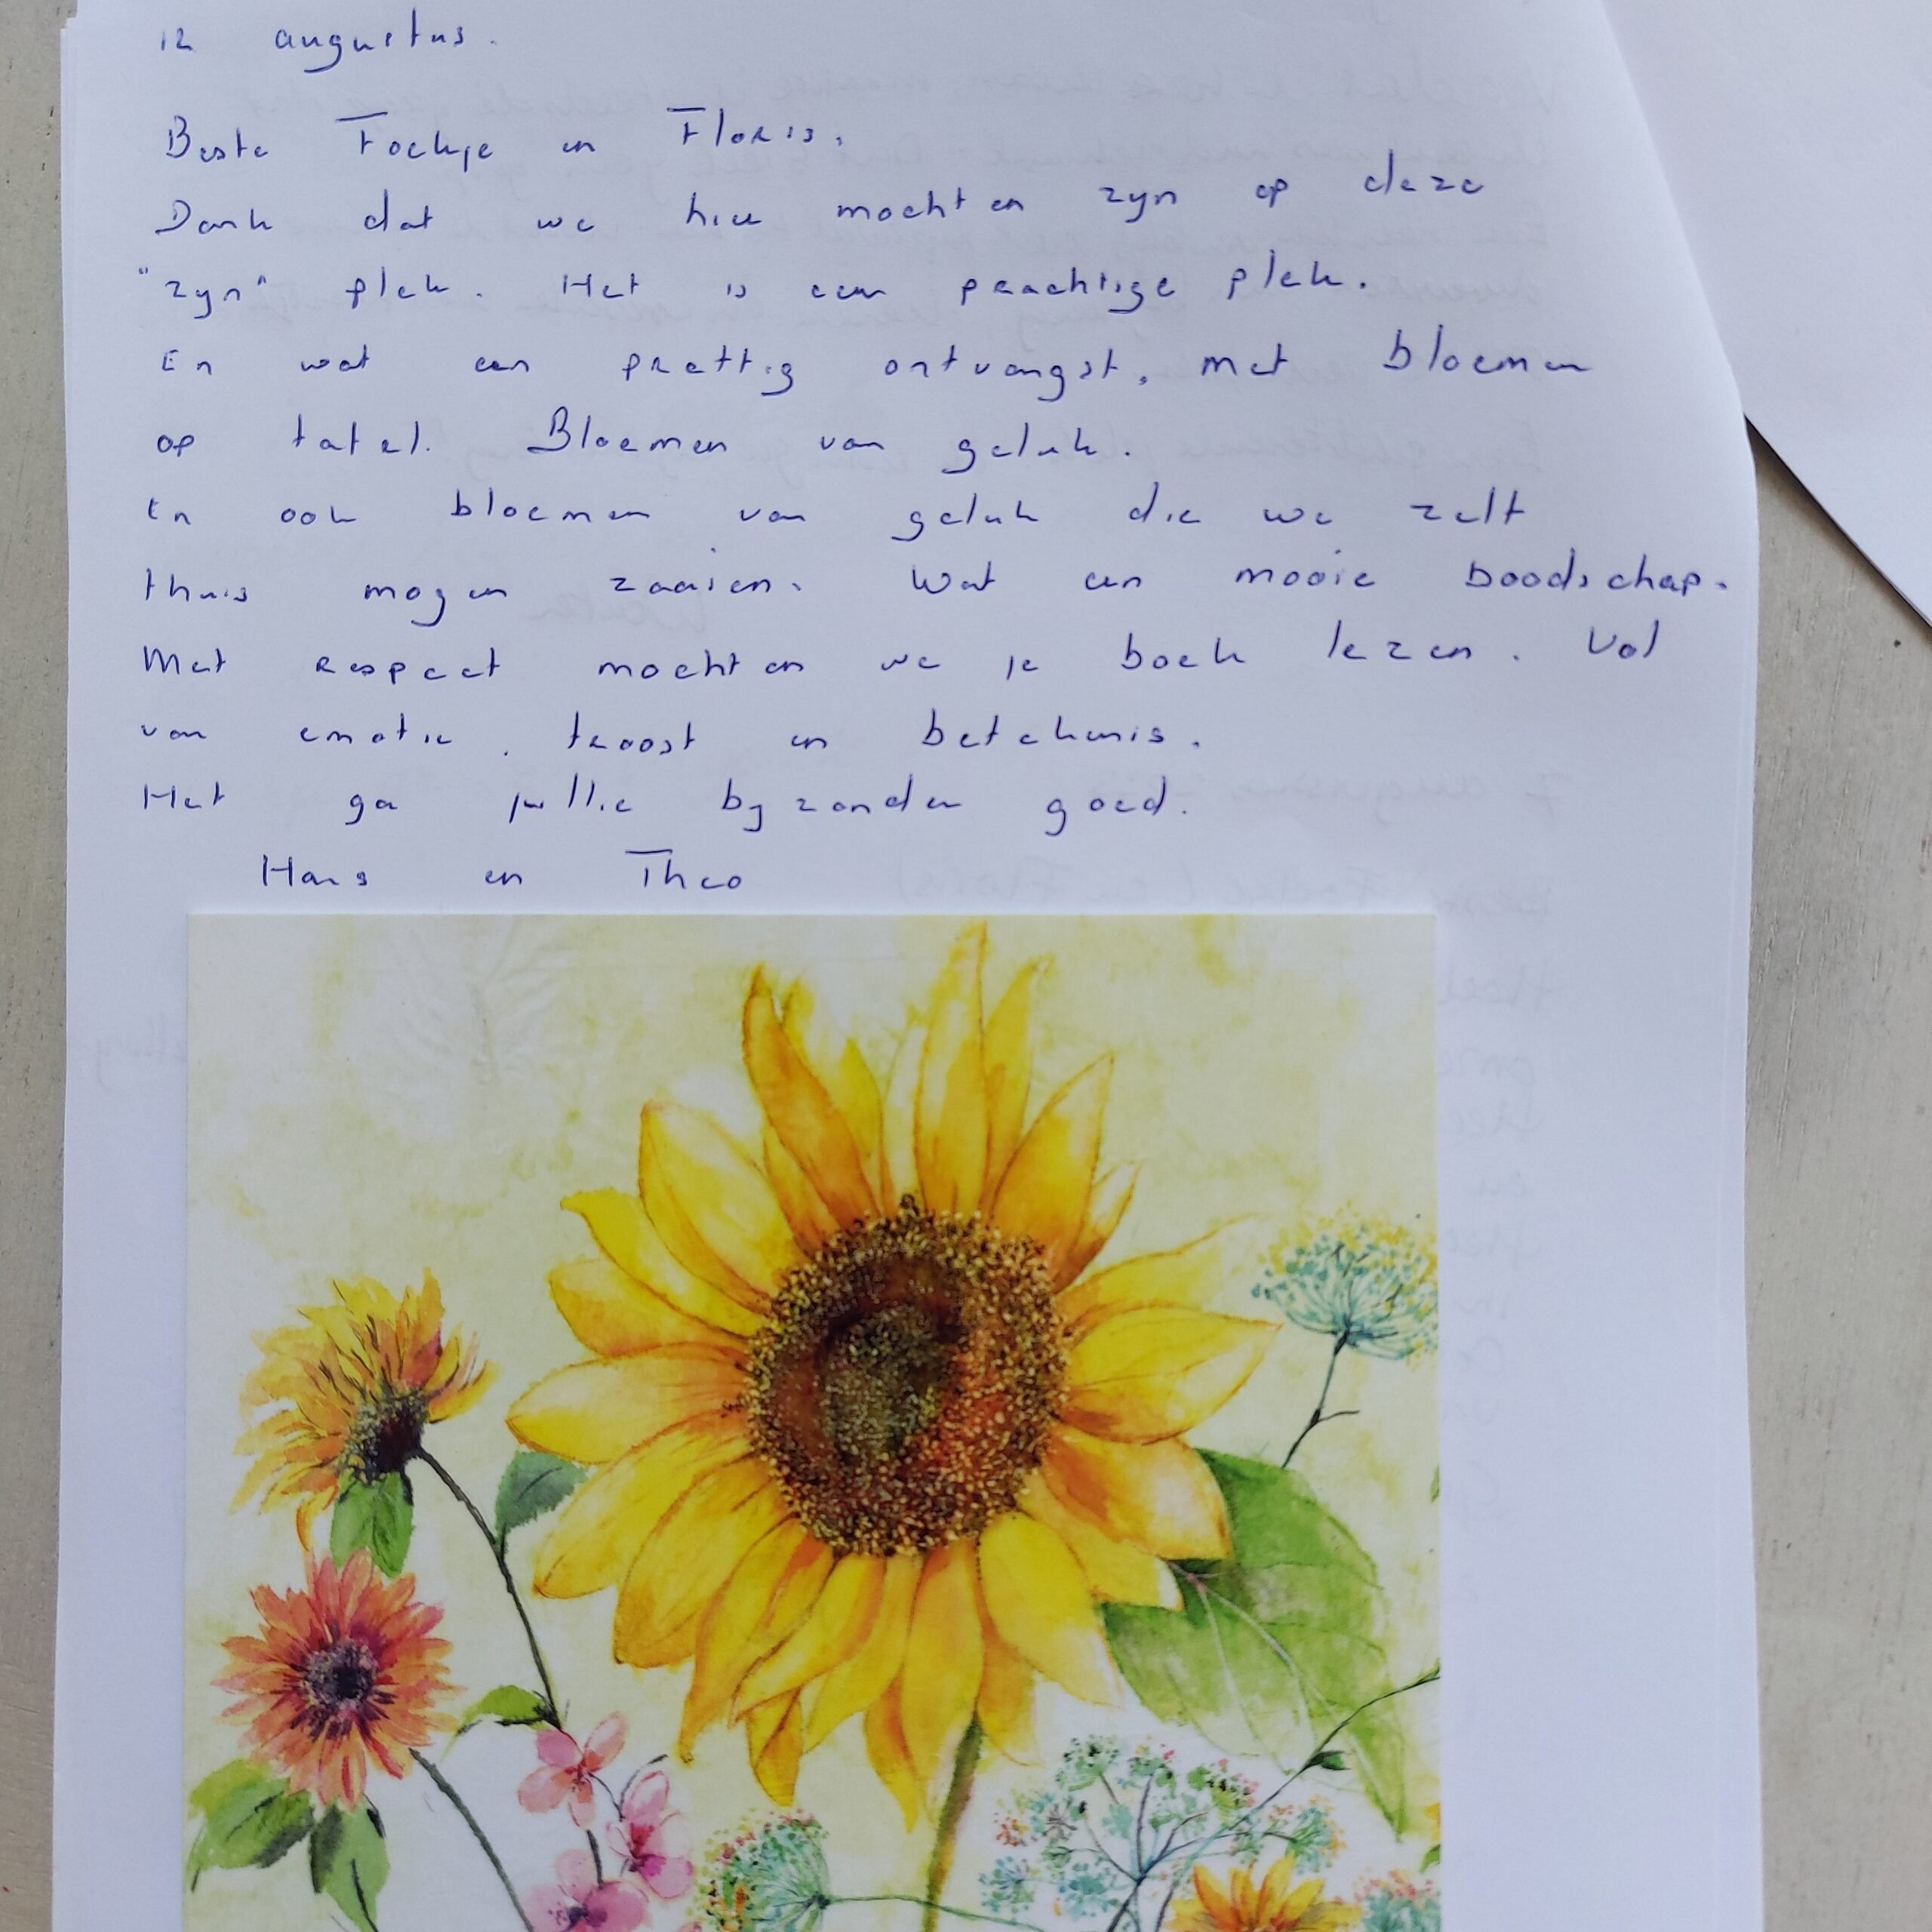 12 augustus.
Beste Fockje en Floris,
Dank dat we hier mochten zyn op deze
"zyn" plek. Het is een prachtige plek.
En wat een prettig ontvangst, met bloemen
op tafel. Bloemen van geluk.
En ook bloemen van geluk die we zelf
thuis mogen zaaien. Wat een mooie boodschap.
Met respect mochten we je boek lezen. Vol
van emotie, troost en betekenis.
Het ga jullie byzonder goed.
Hans en Theo